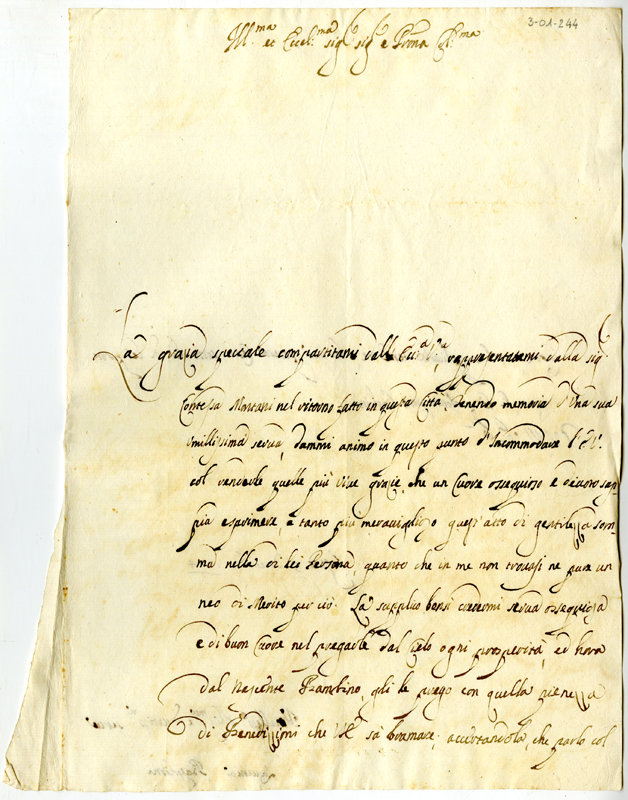 3-01-244
Ill.ma et Eccel.ma sig.ra sig.ra e Prona Col.ma
La grazia speciale compartitami dall Ecc.a V.a, rappresentatami dalla sig.
Contessa Montani nel ritorno fatto in questa Città, tenendo memoria d'Una sua
Umilissima serva, dammi animo in questo punto d'Incommodare l'E.V.
col renderle quelle più vive grazie, che un Cuore ossequioso e devoto sap-
pia esprimere, e tanto più meraviglioso quest'atto di gentilezza som-
ma nella di lei Persona, quanto che in me non trovasi ne pure un
neo di Merito per ciò. La supplico bensì credermi serva ossequiosa
e di buon Cuore nel pregarle dal Cielo ogni prosperità, ed hora
dal Nascente Bambino, gli le prego con quella pienezza
di Benedizzioni che V.E. sà bramare; accertandola, che parlo col